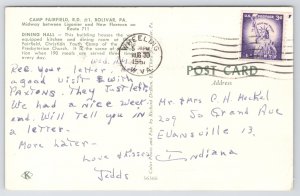 CAMP FAIRFIELD, R.D. #1, BOLIVAR, PA.
Midway between Ligonier and New Florence on
Route 711
DINING HALL — This building houses the
equipped kitchen and dining room at
Fairfield, Christian Youth Camp of the
Presbyterian Church. It is the scene
when 190 meals are served three
every day.
WHEELING
PM
AUG 30
W.VA.
3¢
POST CARD
Address
Rec your letter
a good visit with
Paxtons. They just left
We had a nice week
end. Will tell you in
a letter.
More later.
Love & kisses
Jedds
Mr & Mrs G. H. Heckel
209 So Grand Ave
Evansville 13
Indiana
K